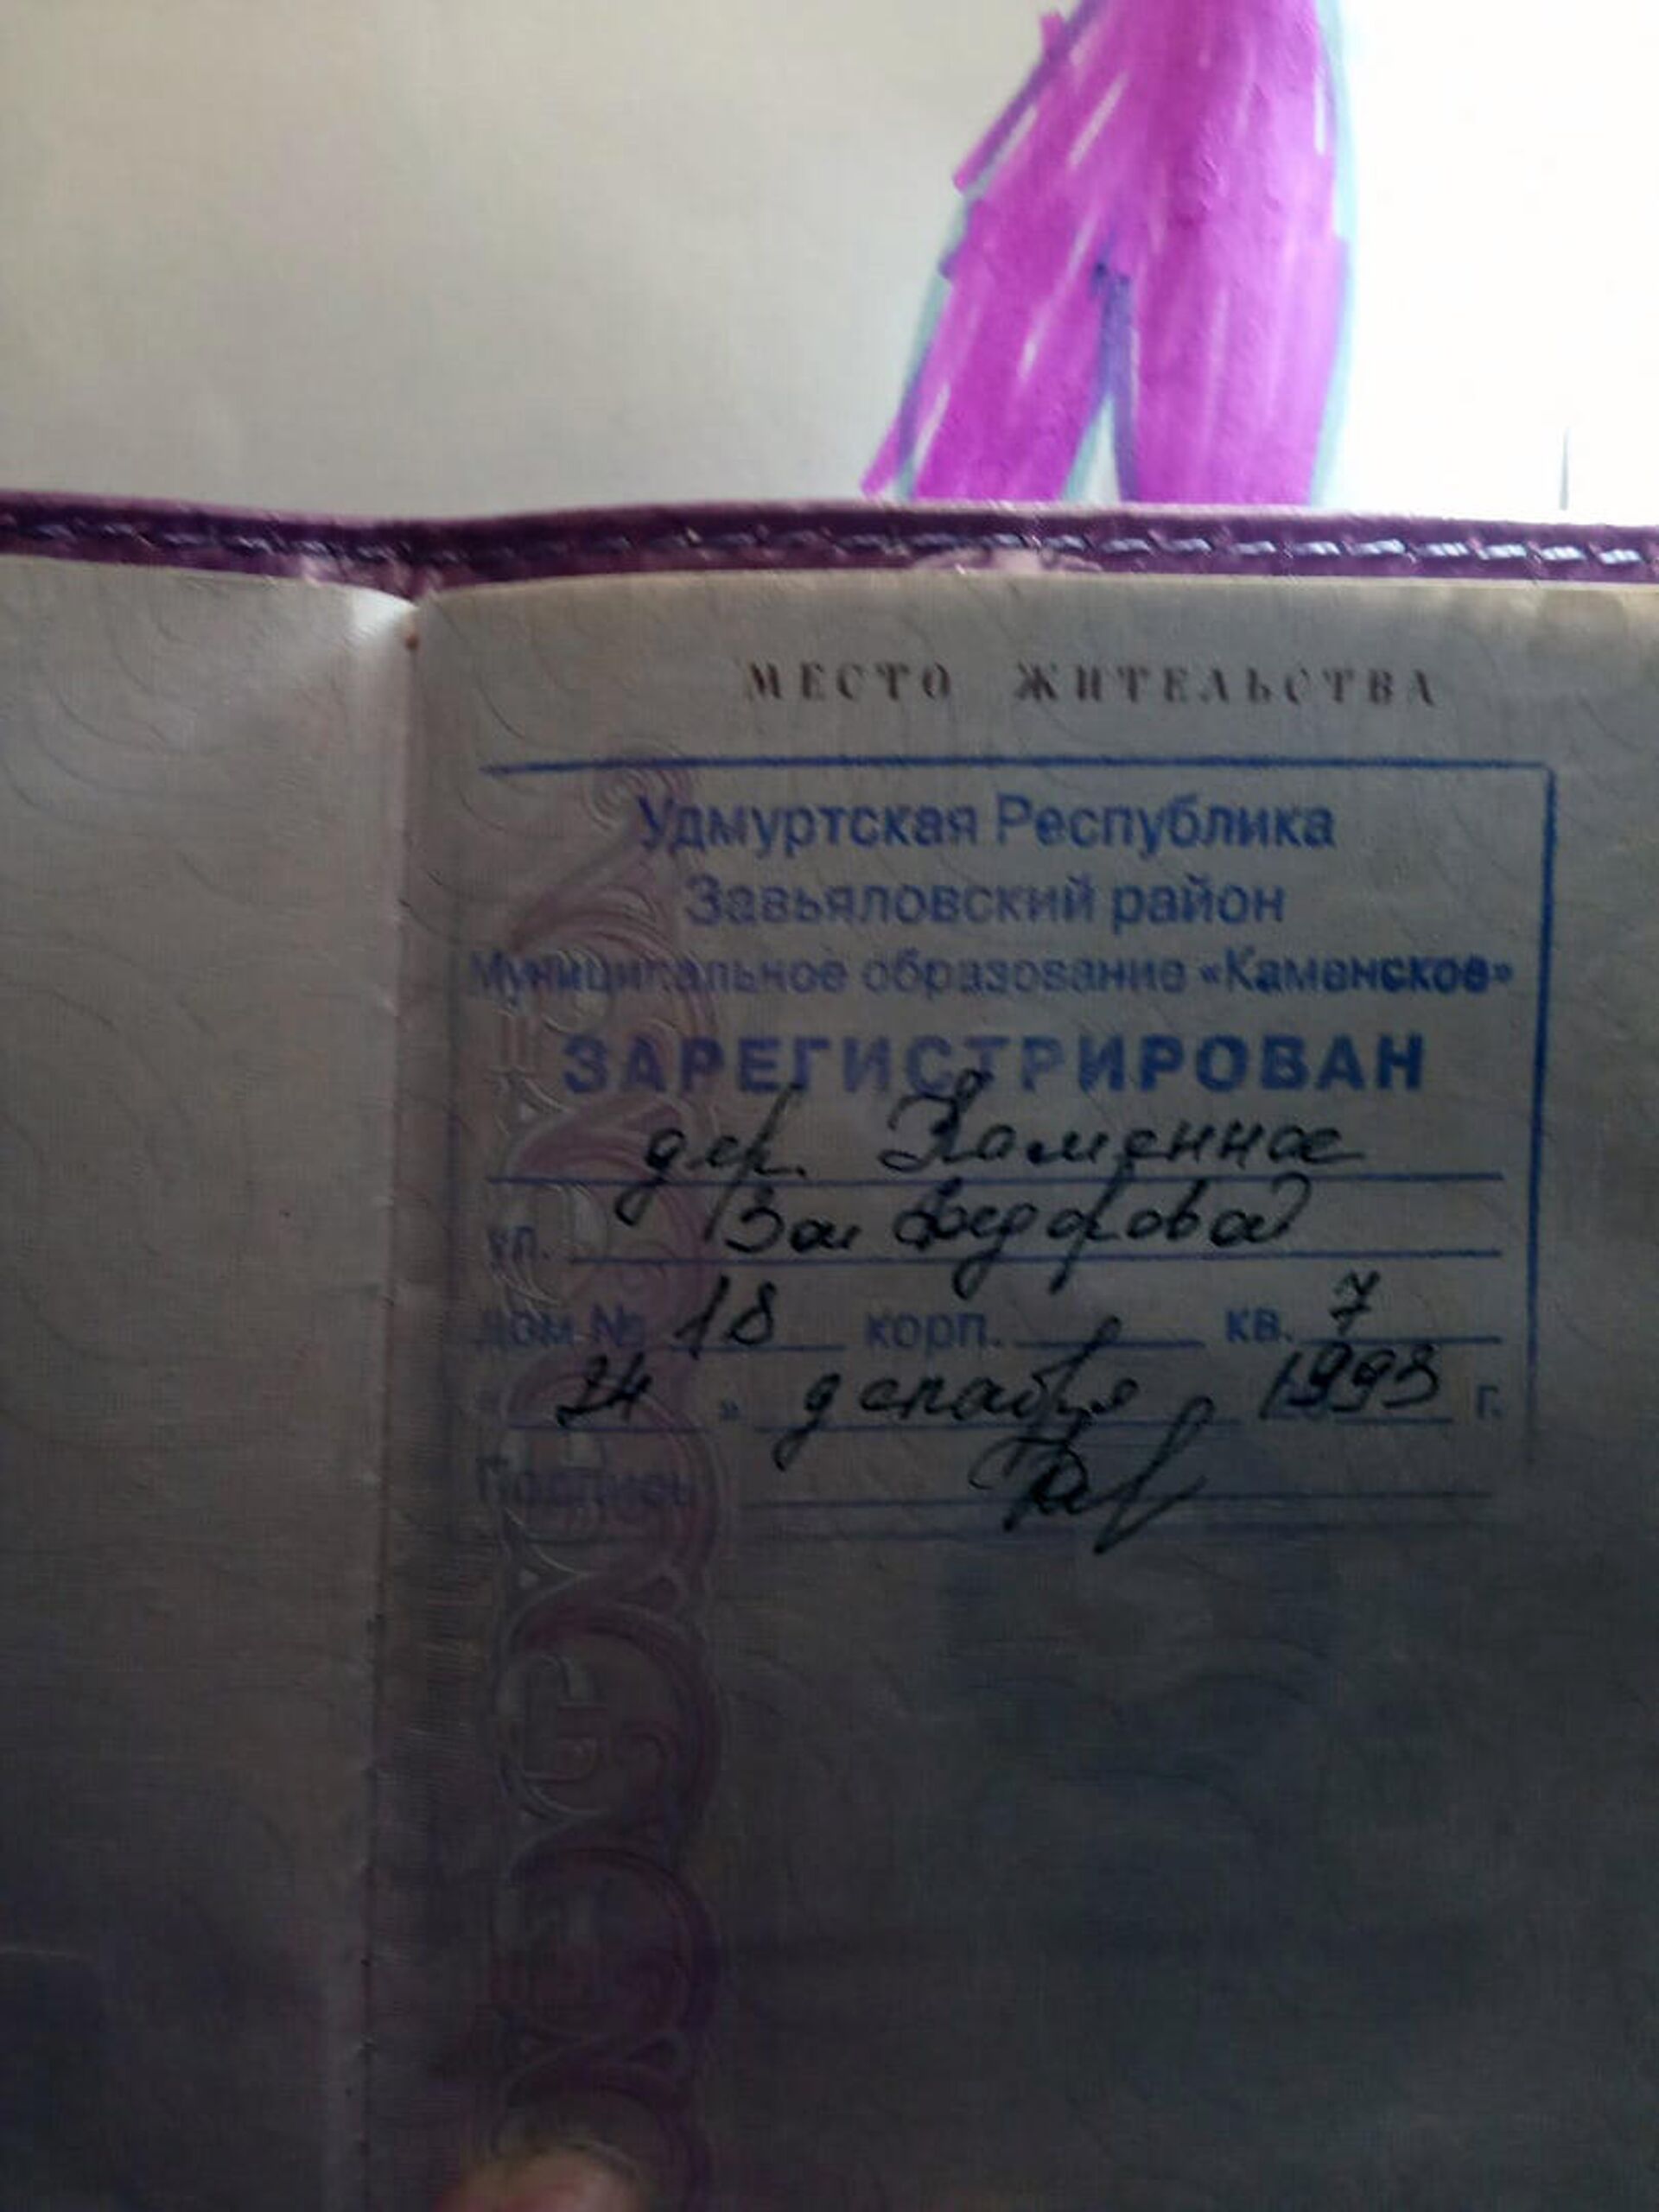 МЕСТО ЖИТЕЛЬСТВА
Удмуртская Республика
Завьяловский район
Муниципальное образование «Каменское»
ЗАРЕГИСТРИРОВАН
дер. Каменное
ул. Зои Федоровой
дом № 18 корп. кв. 7
" 24 " декабря 1993 г.
Подпись